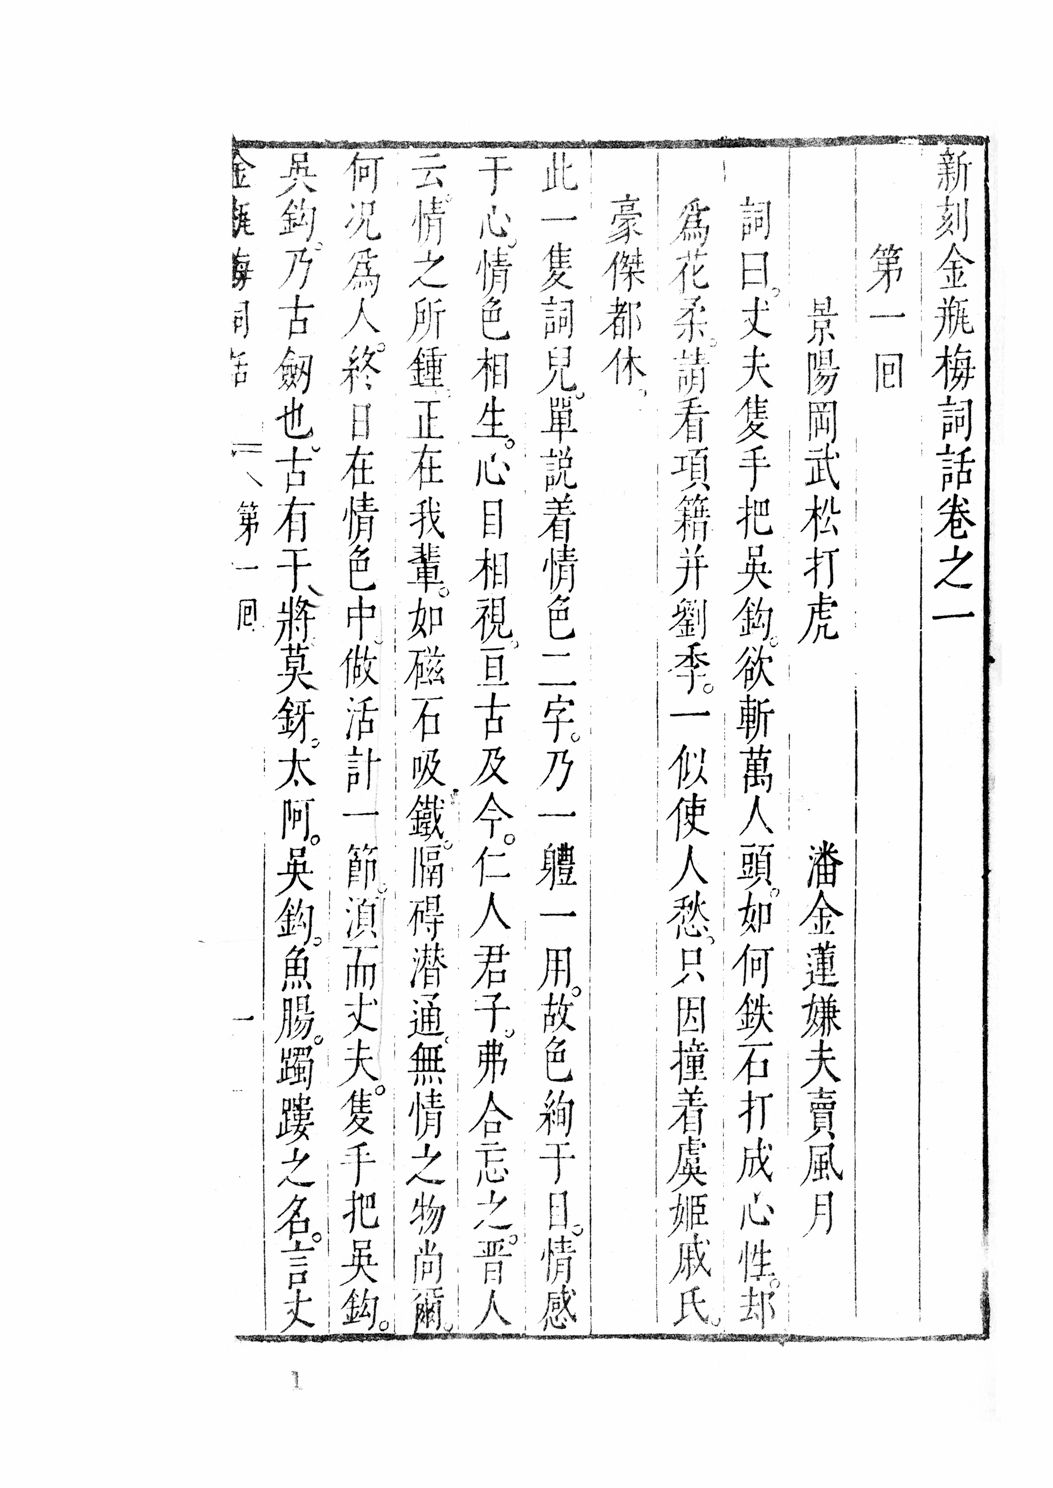 新刻金瓶梅詞話卷之一
第一回
景陽岡武松打虎　潘金蓮嫌夫賣風月
詞曰。丈夫隻手把吳鈎。欲斬萬人頭。如何鉄石打成心性。却
爲花柔。請看項籍并劉季。一似使人愁。只因撞着虞姬戚氏。
豪傑都休。
此一隻詞兒。單説着情色二字。乃一體一用。故色絢于目。情感
于心。情色相生。心目相視。亘古及今。仁人君子。弗合忘之。晋人
云。情之所鍾。正在我輩。如磁石吸鐵。隔碍潜通。無情之物尚爾。
何况爲人。終日在情色中。做活計一節。湏而丈夫。隻手把吳鈎。
吳鈎。乃古劒也。古有干將。莫釾。太阿。吳鈎。魚腸。躅䠱之名。言丈
金瓶梅詞話　第一回　一
1